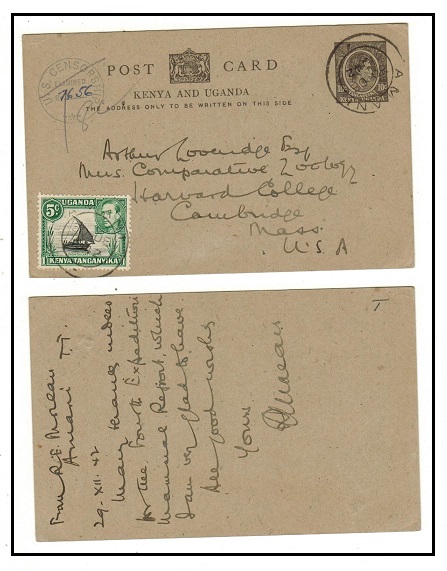 POST CARD
KENYA AND UGANDA
THE ADDRESS ONLY TO BE WRITTEN ON THIS SIDE
U.S. CENSORSHIP
EXAMINED
7656
KENYA UGANDA
Arthur Loveridge Esq
Mus. Comparative Zoology
Harvard College
Cambridge
Mass.
U.S.A
5c UGANDA
KENYA TANGANYIKA
T
From R.E. Moreau
Amani T.T.
29.XII.42
Many thanks indeed
for the Fourth Expedition
Mammal Report, which
I am very glad to have
All good wishes
Yours
REMoreau